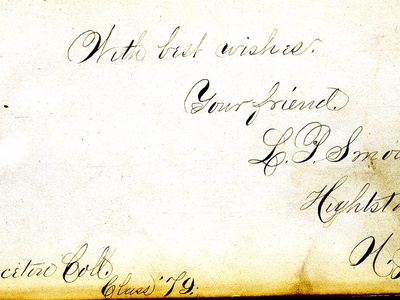 With best wishes.
Your friend
L. P. Smoo
Hightst
N. J
ceton Coll.
Class '79.